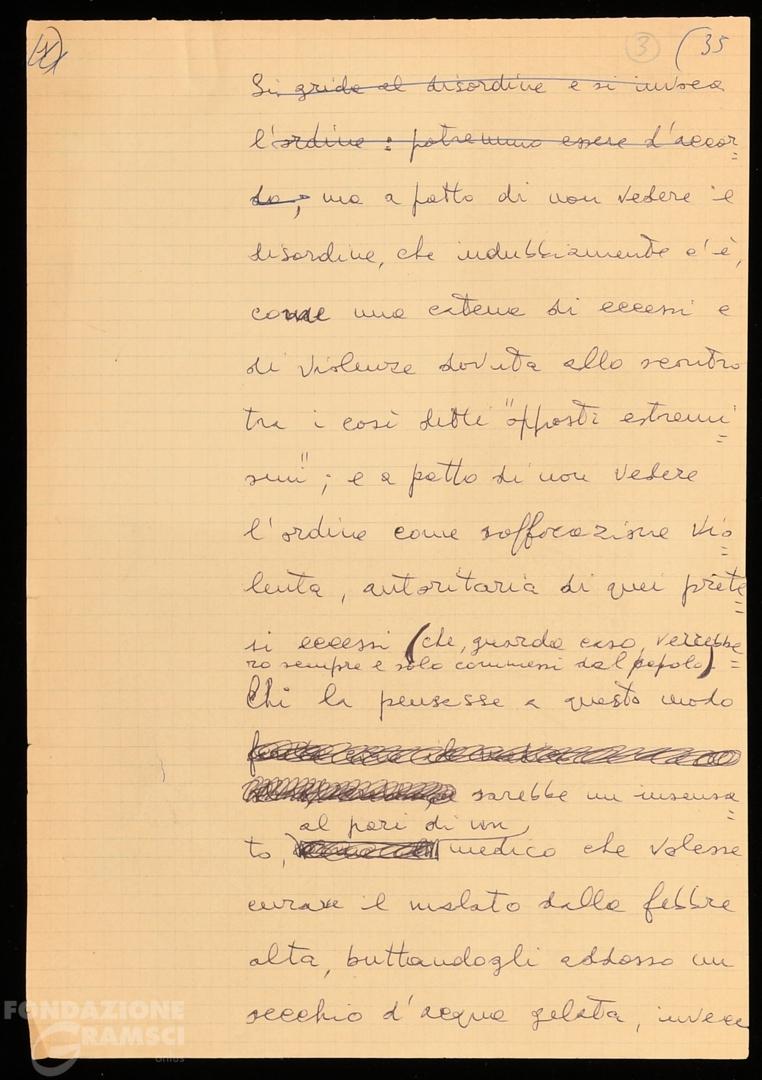 3 (35
Si grida al disordine e si invoca
l'ordine: potremmo essere d'accor=
do, ma a patto di non vedere il
disordine, che indubbiamente c'è,
come una catena di eccessi e
di violenze dovuta allo scontro
tra i così detti "opposti estremi=
smi"; e a patto di non vedere
l'ordine come soffocazione vio=
lenta, autoritaria di quei prete=
si eccessi (che, guarda caso, verrebbe=
ro sempre e solo commessi dal popolo).
Chi la pensasse a questo modo
sarebbe un insensa=
al pari di un
to, medico che volesse
curare il malato dalla febbre
alta, buttandogli addosso un
secchio d'acqua gelata, invece
FONDAZIONE
GRAMSCI
onlus